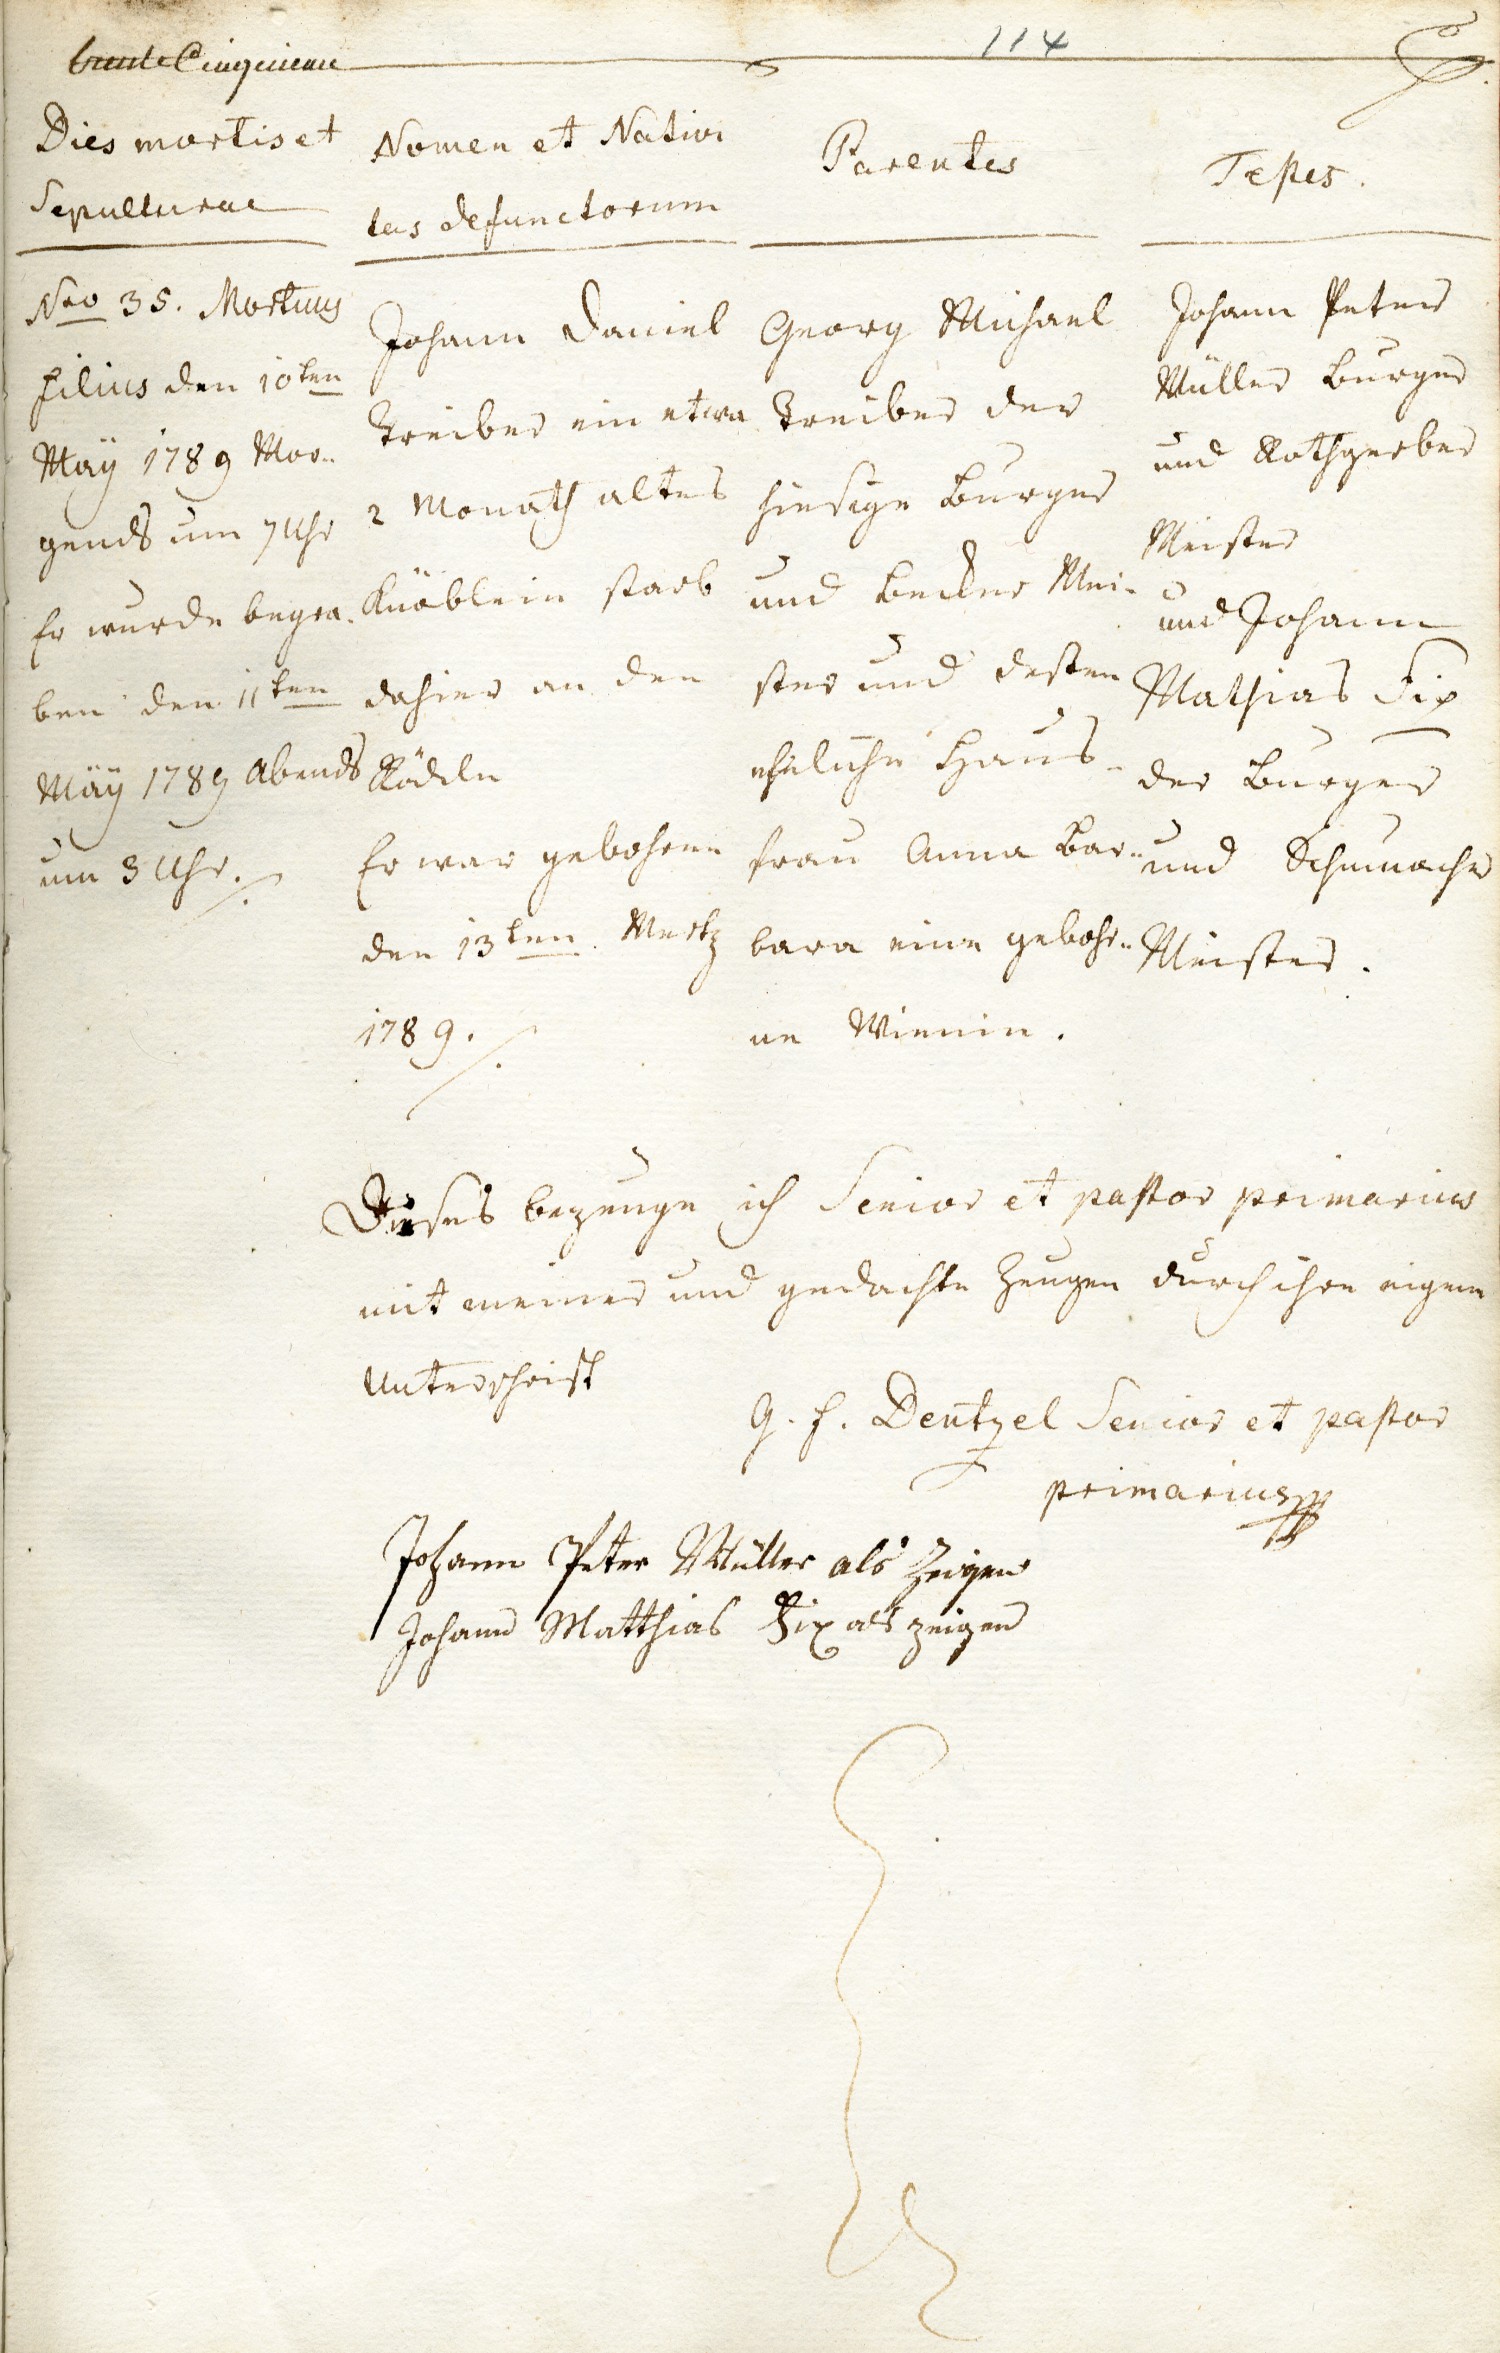 trente Cinquieme
114
Dies mortis et
Sepulturae
No 35. Mortuus
filius den 10ten
Maÿ 1789 Mor¨
gends um 7 Uhr
Er wurde begra¨
ben den 11ten
Maÿ 1789 Abends
um 3 Uhr.
Nomen et Nativi
tas defunctorum
Johann Daniel
Treiber ein etwa
2 Monath altes
Knäblein starb
dahier an den
Rödeln
Er war gebohren
den 13ten Mertz
1789.
Parentes
Georg Michael
Treiber der
hiesige Burger
und Becker Mei¨
ster und dessen
eheliche Haus¨
frau Anna Bar¨
bara eine gebohr¨
ne
Testes.
Johann Peter
Müller Burger
und Rothgerber
Meister
und Johann
Mathias Fix
der Burger
und Schumacher
Meister.
Dieses bezeuge ich Senior et pastor primarius
mit meiner und gedachte Zeugen durch ihre eigene
Unterschrift
G. F. Dentzel Senior et pastor
primarius
Johann Peter Müller als Zeigen
Johann Matthias Fix als zeigen